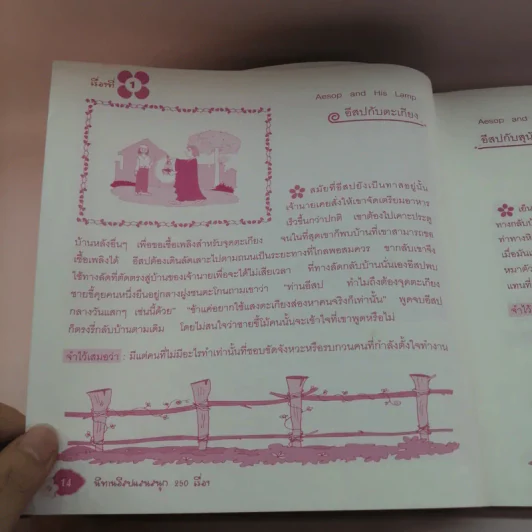 เรื่องที่ 1
Aesop and His Lamp
อีสปกับตะเกียง
สมัยที่อีสปยังเป็นทาสอยู่นั้น
เจ้านายเคยสั่งให้เขาจัดเตรียมอาหาร
เร็วขึ้นกว่าปกติ เขาต้องไปเคาะประตู
บ้านหลังอื่นๆ เพื่อขอเชื้อเพลิงสำหรับจุดตะเกียง จนในที่สุดเขาก็พบบ้านที่เขาสามารถขอ
เชื้อเพลิงได้ อีสปต้องเดินลัดเลาะไปตามถนนเป็นระยะทางที่ไกลพอสมควร ขากลับเขาจึง
ใช้ทางลัดที่ตัดตรงสู่บ้านของเจ้านายเพื่อจะได้ไม่เสียเวลา ที่ทางลัดกลับบ้านนั่นเองอีสปพบ
ชายขี้คุยคนหนึ่งยืนอยู่กลางฝูงชนตะโกนถามเขาว่า "ท่านอีสป ทำไมถึงต้องจุดตะเกียง
กลางวันแสกๆ เช่นนี้ด้วย" "ข้าแค่อยากใช้แสงตะเกียงส่องหาคนจริงก็เท่านั้น" พูดจบอีสป
ก็ตรงรี่กลับบ้านตามเดิม โดยไม่สนใจว่าชายขี้โม้คนนั้นจะเข้าใจที่เขาพูดหรือไม่
จำไว้เสมอว่า : มีแต่คนที่ไม่มีอะไรทำเท่านั้นที่ชอบขัดจังหวะหรือรบกวนคนที่กำลังตั้งใจทำงาน
14 นิทานอีสปแสนสนุก 250 เรื่อง
Aesop and
อีสปกับสุนั